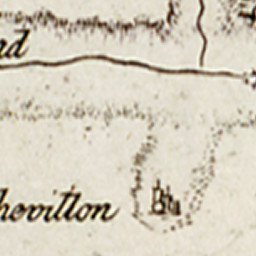 nd
hevillon